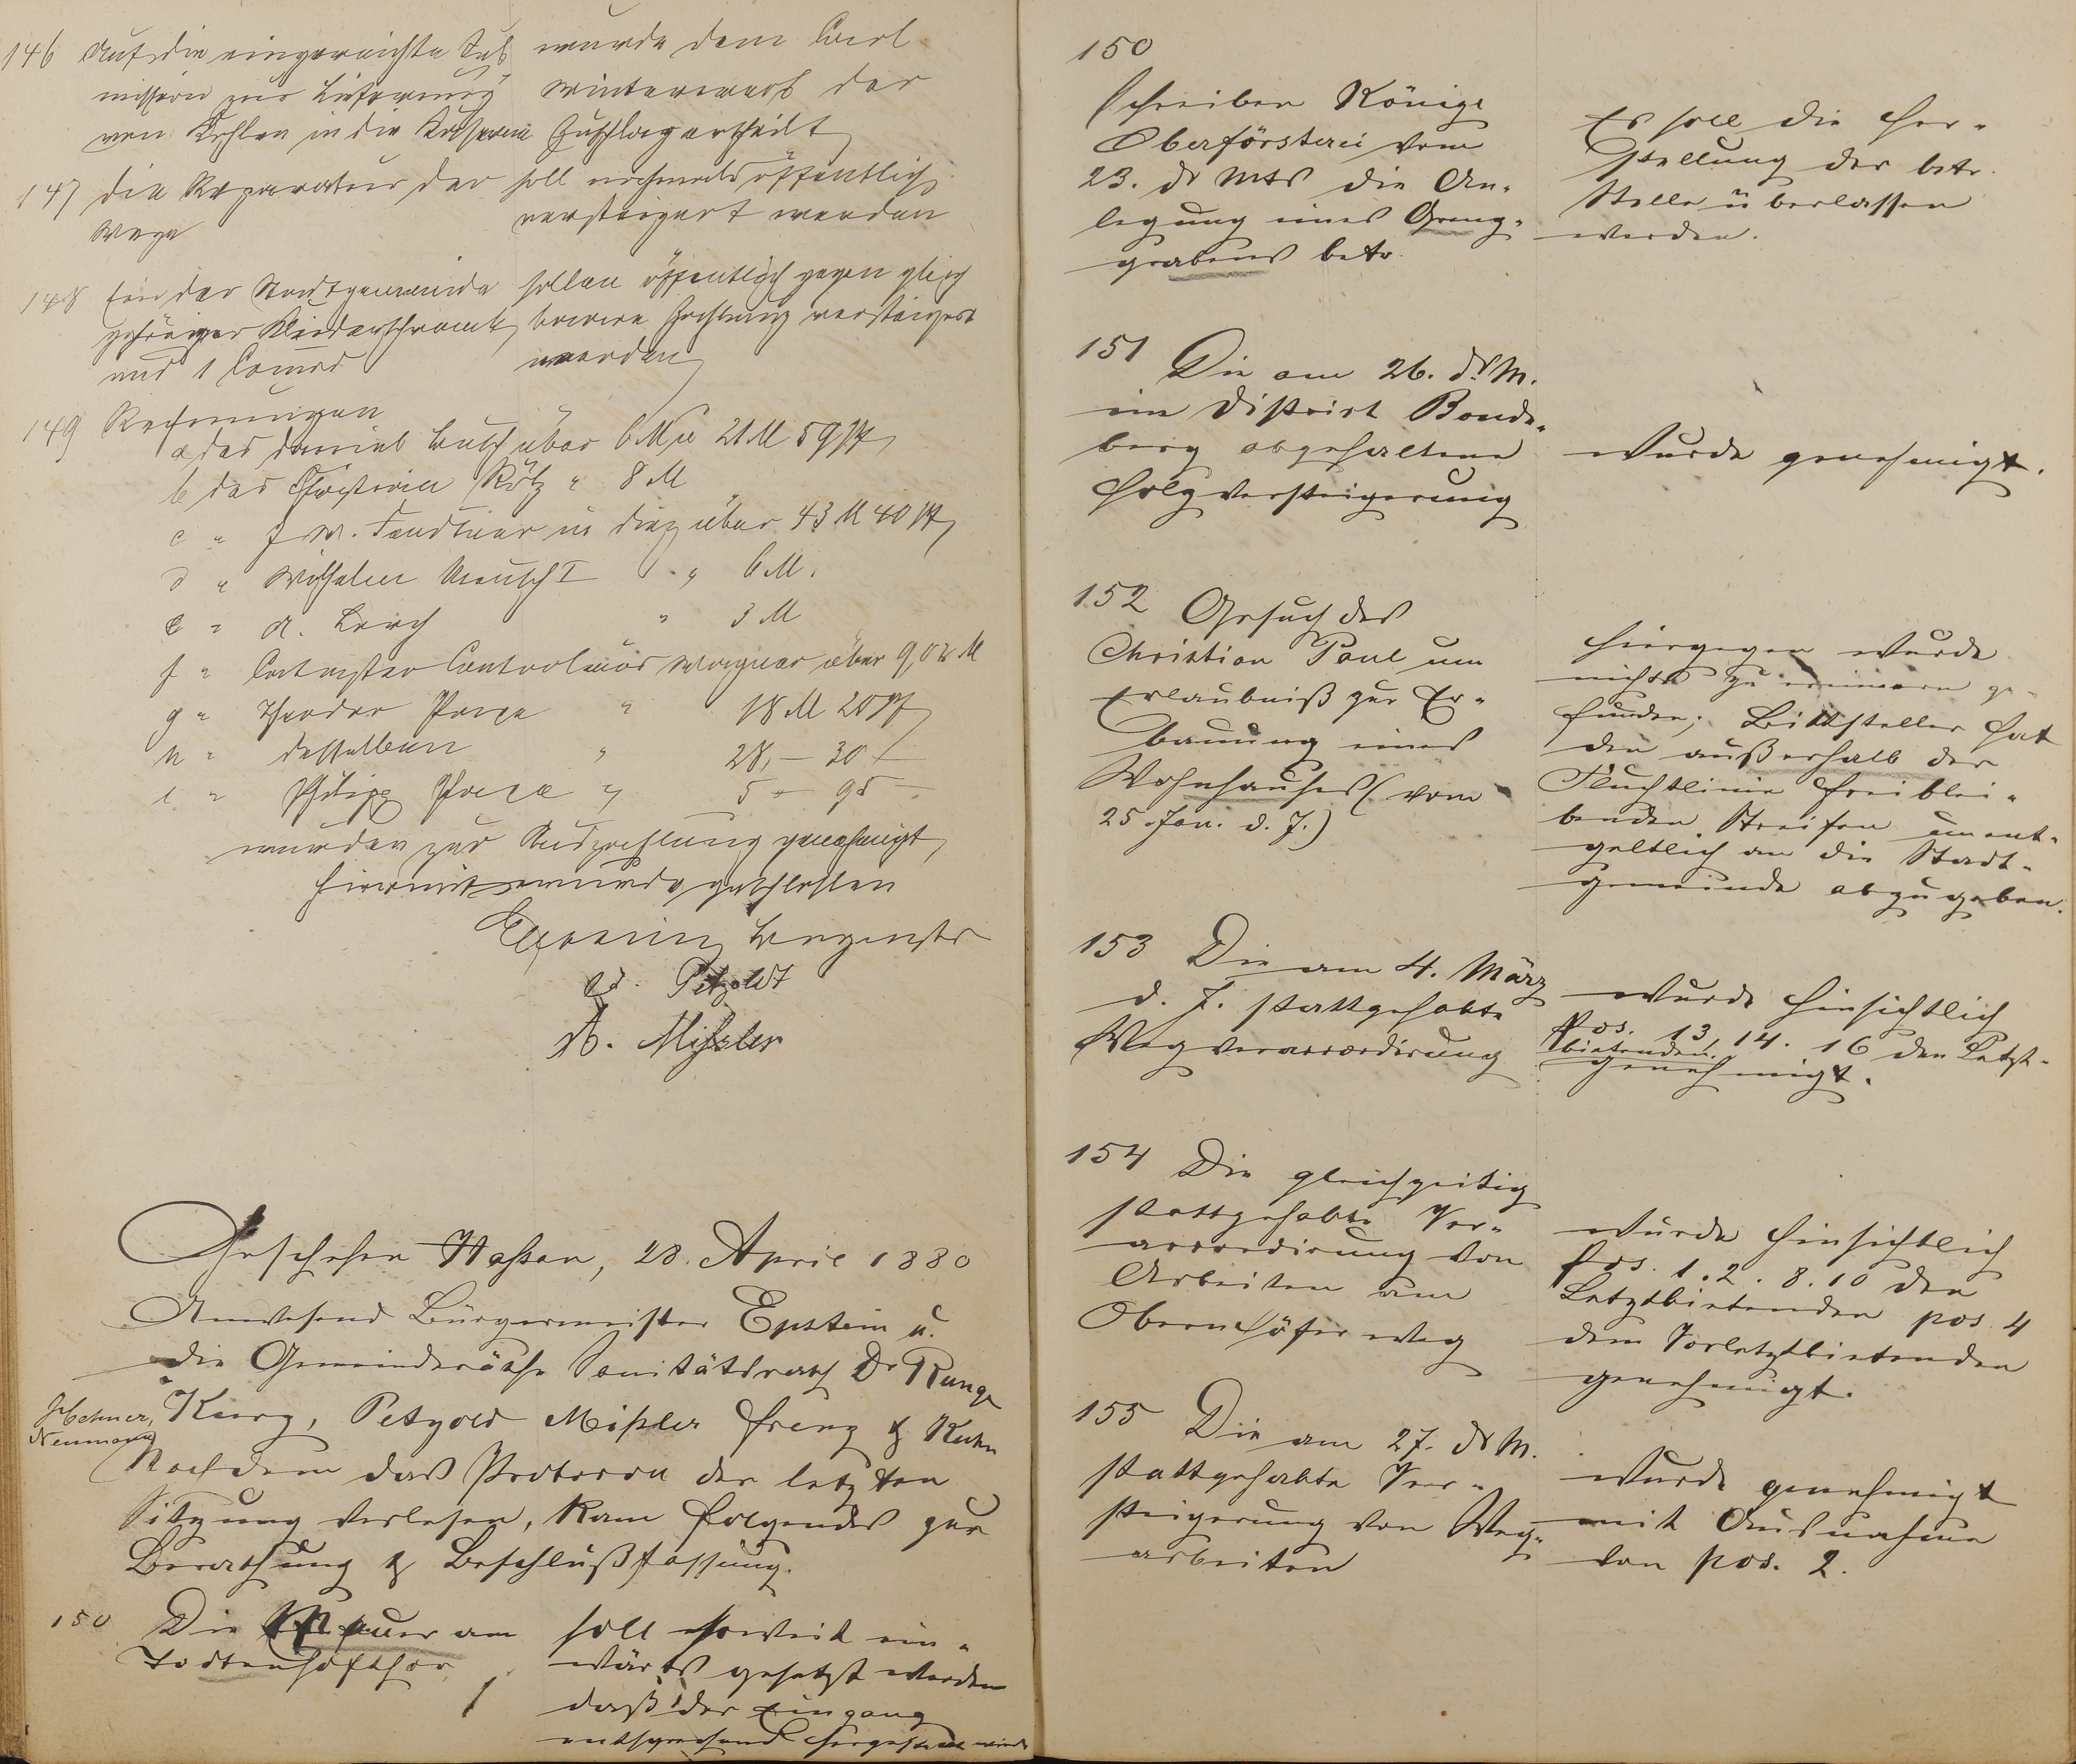 146 Auf die eingereichte Sub
mission zur Lieferung
von Kohlen in die Kaserne
wurde dem Carl
Winterwerb der
Zuschlag ertheilt
147 die Reparatur der
Wege
soll nochmals öffentlich
versteigert werden
148 Ein der Stadtgemeinde
gehöriger Kleiderschrank
und 1 Comod
sollen öffentlich gegen gleich
baare Zahlung versteigert
werden
149 Rechnungen
a des Daniel Busch über 6 M u 21 M 59 Pf
b des Christian Rötz " 8 M
c " J. W. in Diez über 43 M 40 Pf
d " Wilhelm I " 6 M.
e " A. Lorch " 3 M
f " Cataster Controleur Wagner über 9,02 M
g " Theodor " 18 M 20 Pf
h " desselben " 28,- 30
i " Philipp " 5 - 95 -
wurden zur Auszahlung genehmigt,
hiermit wurde geschlossen
Epstein Bürgermstr
Petzoldt
A. Mißler
Geschehen Nassau, 28. April 1880
Anwesend Bürgermeister Epstein u.
die Gemeinderäthe Sanitätsrath Dr Runge
Hehner,
Neumann
Kurz, Petzold Mißler Frenz & Kuhn
Nachdem das Protocoll der letzten
Sitzung verlesen, kam folgendes zur
Berathung & Beschlußfassung.
150 Die Mauer am
Todtenhofthor
soll soweit ein-
wärts gesetzt werden
daß der Eingang
entsprechend hergestellt wird
150
Schreiben Königl
Oberförsterei vom
23. ds Mts die An-
legung eines Grenz-
grabens betr.
Es soll die Her-
stellung der betr.
Stelle überlassen
werden.
151 Die am 26. ds M.
im District Bonde-
berg abgehaltene
Holzversteigerung
wurde genehmigt.
152 Gesuch des
Christian Paul um
Erlaubniß zur Er-
bauung eines
Wohnhauses (vom
25 Jan. d. J.)
Hiergegen wurde
nichts zu erinnern ge-
funden; Bittsteller hat
den außerhalb der
Fluchtlinie freiblei-
benden Streifen unent-
geltlich an die Stadt-
gemeinde abzugeben.
153 Die am 4. März
d. J. stattgehabte
Wegveraccordirung
wurde hinsichtlich
Pos. 13. 14. 16 den Letzt-
bietenden
genehmigt.
154 Die gleichzeitig
stattgehabte Ver-
accordirung von
Arbeiten am
Obernhöfer weg
wurde hinsichtlich
pos. 1. 2. 8. 10 den
Letztbietenden pos. 4
dem Vorletztbietenden
genehmigt.
155 Die am 27. ds M.
stattgehabte Ver-
steigerung von Weg-
arbeiten
wurde genehmigt
mit Ausnahme
von pos. 2.